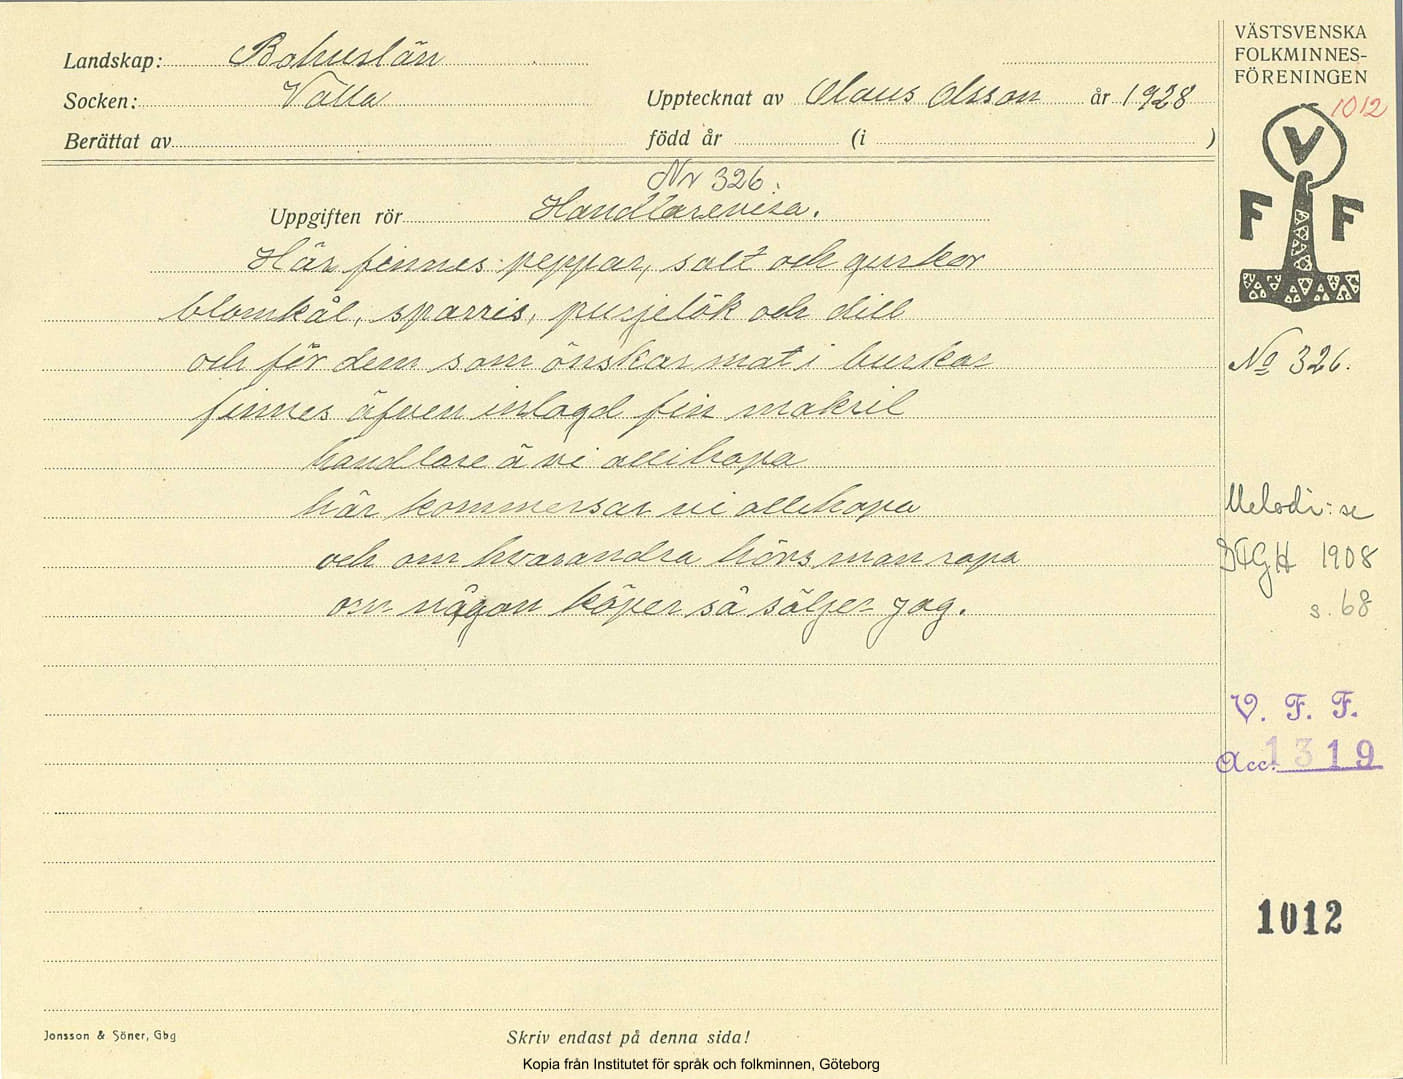 Landskap: Bohuslän
Socken: Valla
Upptecknat av Olaus Olsson år 1928
Berättat av
född år (i )
Nr 326.
Uppgiften rör Handlarevisa.
Här finnes peppar, salt och gurkor
blomkål, sparris, purjelök och dill
och för dem som önskar mat i burkar
finnes äfven inlagd fin makril
handlare ä vi allihopa
här kommersar vi allihopa
och om hvarandra hörs man ropa
om någon köper så säljer jag.
VÄSTSVENSKA
FOLKMINNES-
FÖRENINGEN
1012
V
F F
No 326.
Melodi: se
1908
s. 68
V. F. F.
Acc. 1319
1012
Jonsson & Söner, Gbg
Skriv endast på denna sida!
Kopia från Institutet för språk och folkminnen, Göteborg